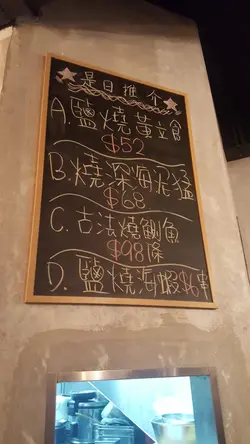 是日推介
A. 鹽燒黃立倉
$52
B. 燒深海泥鯭
$68
C. 古法燒鯽魚
$98條
D. 鹽燒海蝦$16串